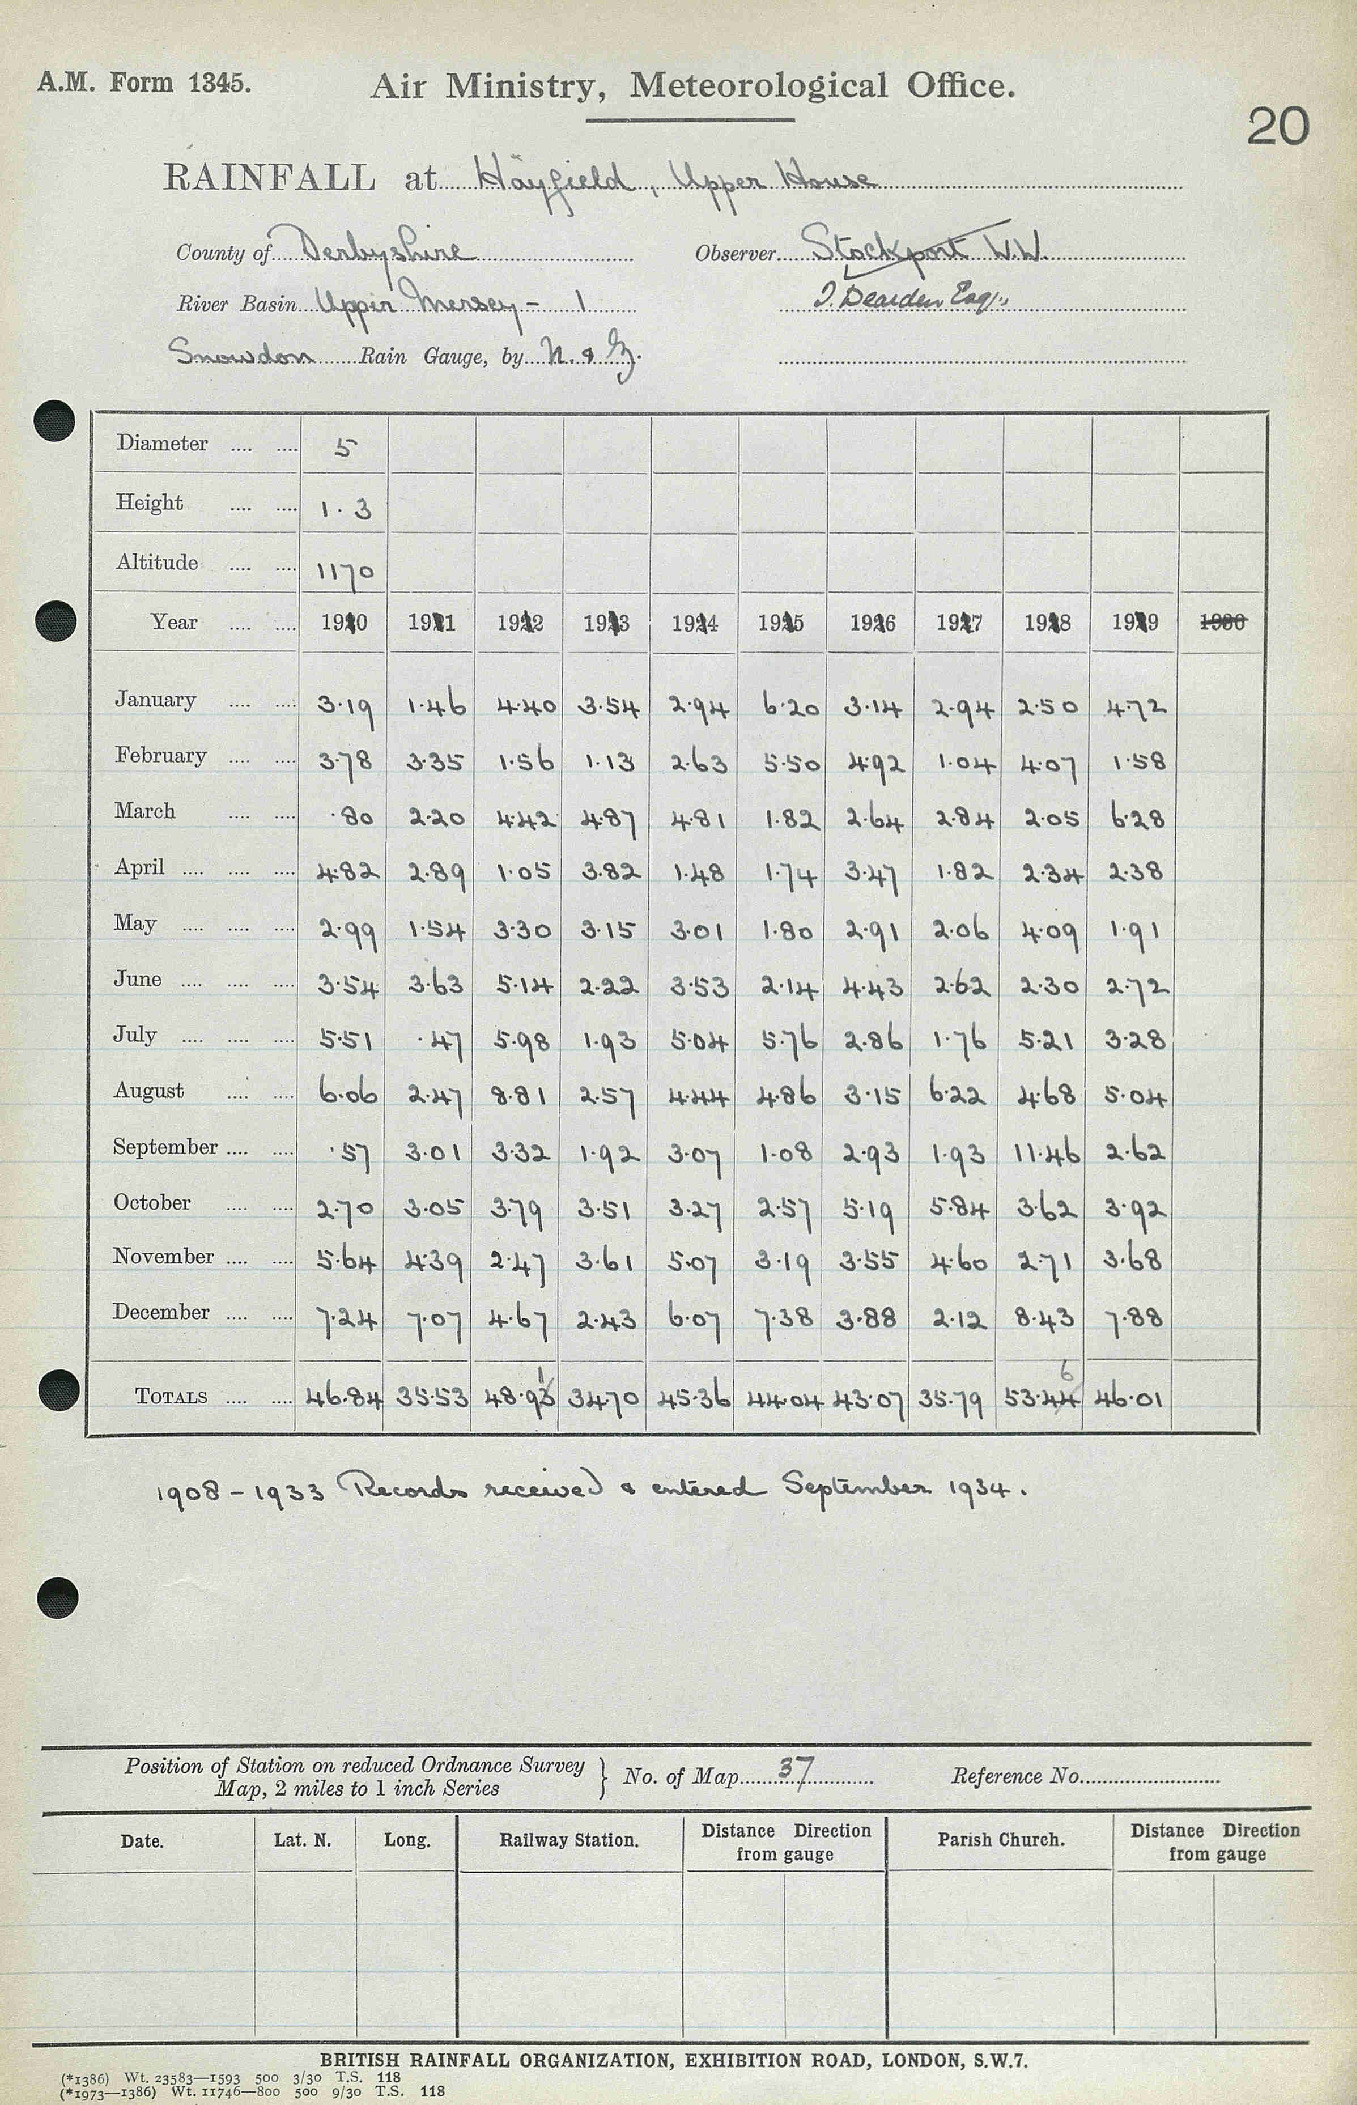 A.M. Form 1345.
Air Ministry, Meteorological Office.
20
RAINFALL at Hayfield, Upper House
County of Derbyshire Observer Stockport W.W.
River Basin Upper Mersey - 1 J. Dearden Esq.,
Snowdon Rain Gauge, by N. & Z.
Diameter .... .... 5
Height .... .... 1.3
Altitude .... .... 1170
Year .... .... 1910 1911 1912 1913 1914 1915 1916 1917 1918 1919 1930
January .... .... 3.19 1.46 4.40 3.54 2.94 6.20 3.14 2.94 2.50 4.72
February .... .... 3.78 3.35 1.56 1.13 2.63 5.50 4.92 1.04 4.07 1.58
March .... .... .80 2.20 4.42 4.87 4.81 1.82 2.64 2.84 2.05 6.28
April .... .... .... 4.82 2.89 1.05 3.82 1.48 1.74 3.47 1.82 2.34 2.38
May .... .... .... 2.99 1.54 3.30 3.15 3.01 1.80 2.91 2.06 4.09 1.91
June .... .... .... 3.54 3.63 5.14 2.22 3.53 2.14 4.43 2.62 2.30 2.72
July .... .... .... 5.51 .47 5.98 1.93 5.04 5.76 2.86 1.76 5.21 3.28
August .... .... 6.06 2.47 8.81 2.57 4.44 4.86 3.15 6.22 4.68 5.04
September .... .... .57 3.01 3.32 1.92 3.07 1.08 2.93 1.93 11.46 2.62
October .... .... 2.70 3.05 3.79 3.51 3.27 2.57 5.19 5.84 3.62 3.92
November .... .... 5.64 4.39 2.47 3.61 5.07 3.19 3.55 4.60 2.71 3.68
December .... .... 7.24 7.07 4.67 2.43 6.07 7.38 3.88 2.12 8.43 7.88
1 6
TOTALS .... .... 46.84 35.53 48.93 34.70 45.36 44.04 43.07 35.79 53.44 46.01
1908 - 1933 Records received & entered September 1934.
Position of Station on reduced Ordnance Survey
Map, 2 miles to 1 inch Series } No. of Map 37 Reference No.
Date. Lat. N. Long. Railway Station. Distance Direction from gauge Parish Church. Distance Direction from gauge
BRITISH RAINFALL ORGANIZATION, EXHIBITION ROAD, LONDON, S.W.7.
(*1386) Wt. 23583—1593 500 3/30 T.S. 118
(*1973—1386) Wt. 11746—800 500 9/30 T.S. 118